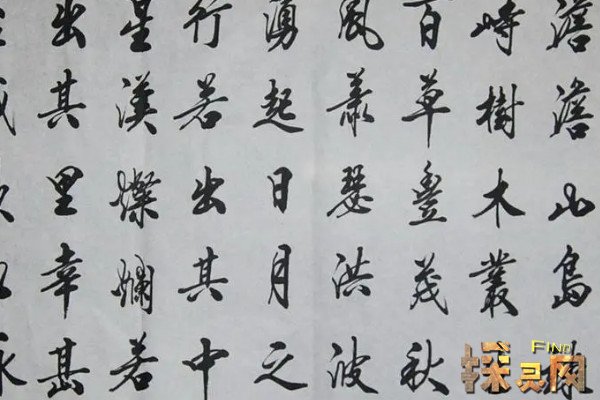 澹澹山島
峙樹木叢
百草豐茂秋
風蕭瑟洪波
湧起日月之
行若出其中
星漢燦爛若
出其里幸甚
FIND
探灵网